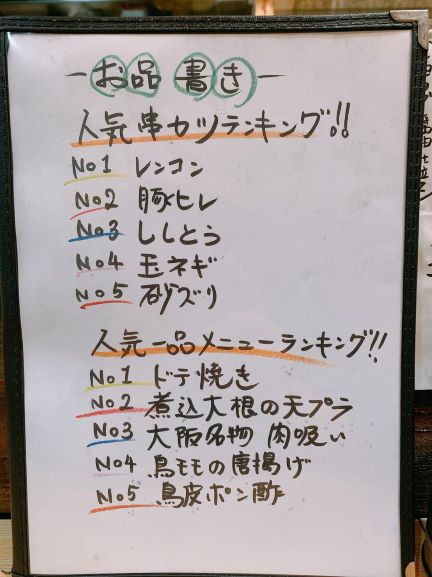 -お品書き-
人気串カツランキング!!
No1 レンコン
No2 豚ヒレ
No3 ししとう
No4 玉ネギ
No5 砂ズリ
人気一品メニューランキング!!
No1 ドテ焼き
No2 煮込大根の天プラ
No3 大阪名物 肉吸い
No4 鳥モモの唐揚げ
No5 鳥皮ポン酢